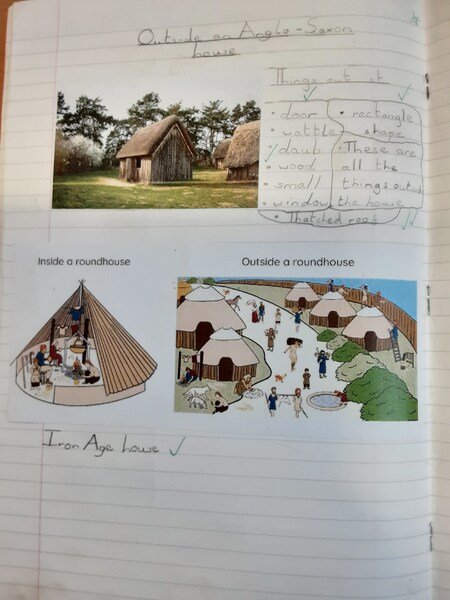 Outside an Anglo-Saxon
house
Things out it
• door
• wattle
daub
• wood
• small
• window
• rectangle
shape
• These are
all the
things outside
the house
• Thatched roof
Inside a roundhouse
Outside a roundhouse
Iron Age house